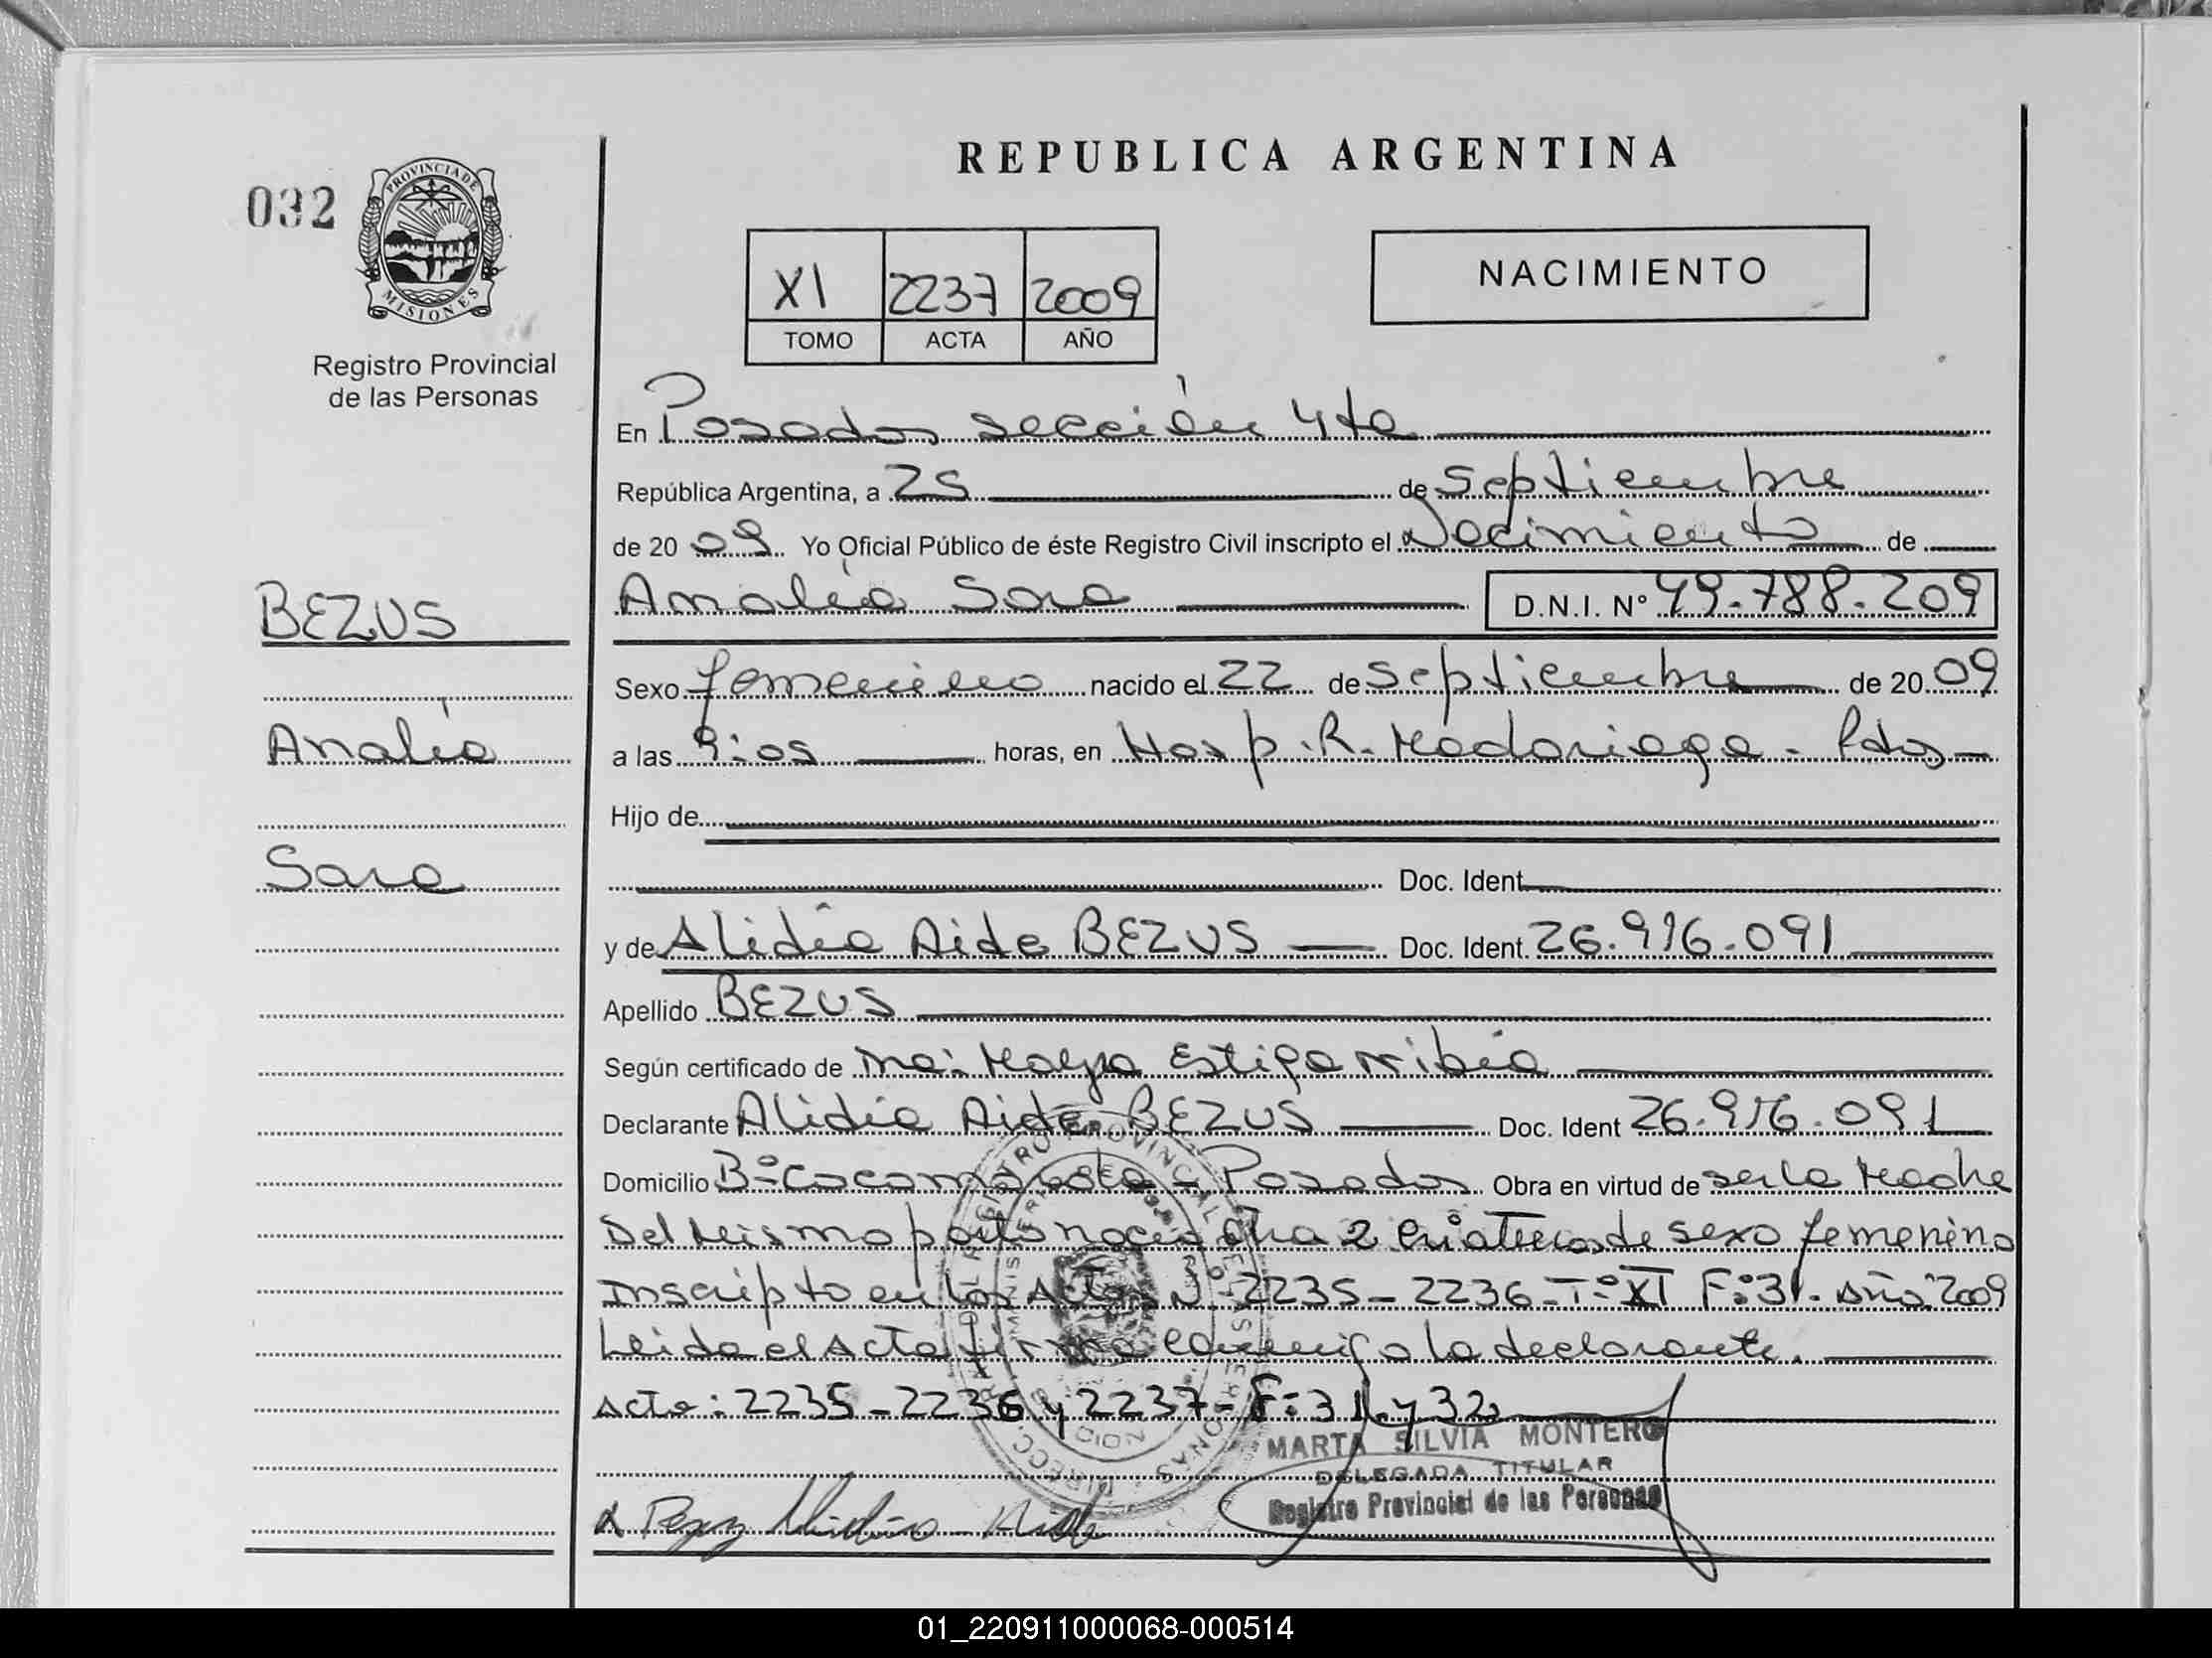 REPUBLICA ARGENTINA
032
PROVINCIA DE
MISIONES
Registro Provincial
de las Personas
XI 2237 2009
TOMO ACTA AÑO
NACIMIENTO
En Posadas sección 4ta
República Argentina, a 25 de Septiembre
de 2009 Yo Oficial Público de éste Registro Civil inscripto el Nacimiento de
Analía Sara D.N.I. Nº 49.788.209
BEZUS
Analía
Sara
Sexo femenino nacido el 22 de Septiembre de 2009
a las 9:05 horas, en Hosp. R. Madariaga - Pdas
Hijo de
Doc. Ident.
y de Alidia Aide BEZUS Doc. Ident. 26.916.091
Apellido BEZUS
Según certificado de Estigarribia
Declarante Alidia Aide BEZUS Doc. Ident 26.916.091
Domicilio Bº Cocomarola - Posadas Obra en virtud de ser la Madre
Del Mismo parto nació otra 2 criaturas de sexo femenino
Inscripto en las Actas Nº 2235 - 2236 - Tº XI Fº: 31. Año 2009
Leida el Acta firma conmigo la declarante.
Acta: 2235 - 2236 y 2237 - F: 31 y 32
MARTA SILVIA MONTERO
DELEGADA TITULAR
Registro Provincial de las Personas
01_220911000068-000514